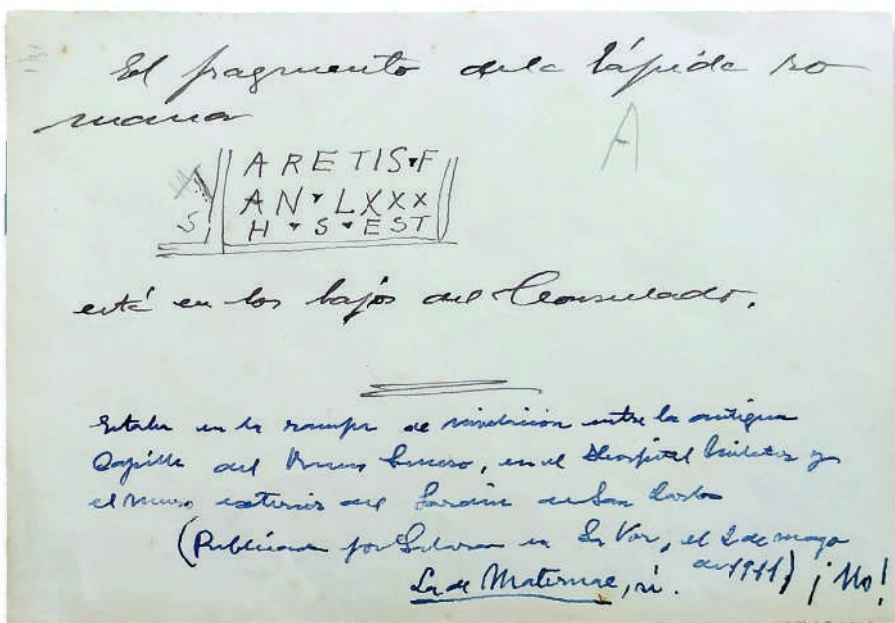 El fragmento de la lápida ro
mana
A
ARETIS▾F
AN▾LXXX
S H▾S▾EST
está en los bajos del Consulado.
Estaba en la rampa de entre la antigua
Capilla del Buen Suceso, en el Hospital Militar y
el muro exterior del Jardín de San Carlos
(Publicada por en La Voz, el 2 de mayo
de 1911)
La de Maternae, sí. ¡No!